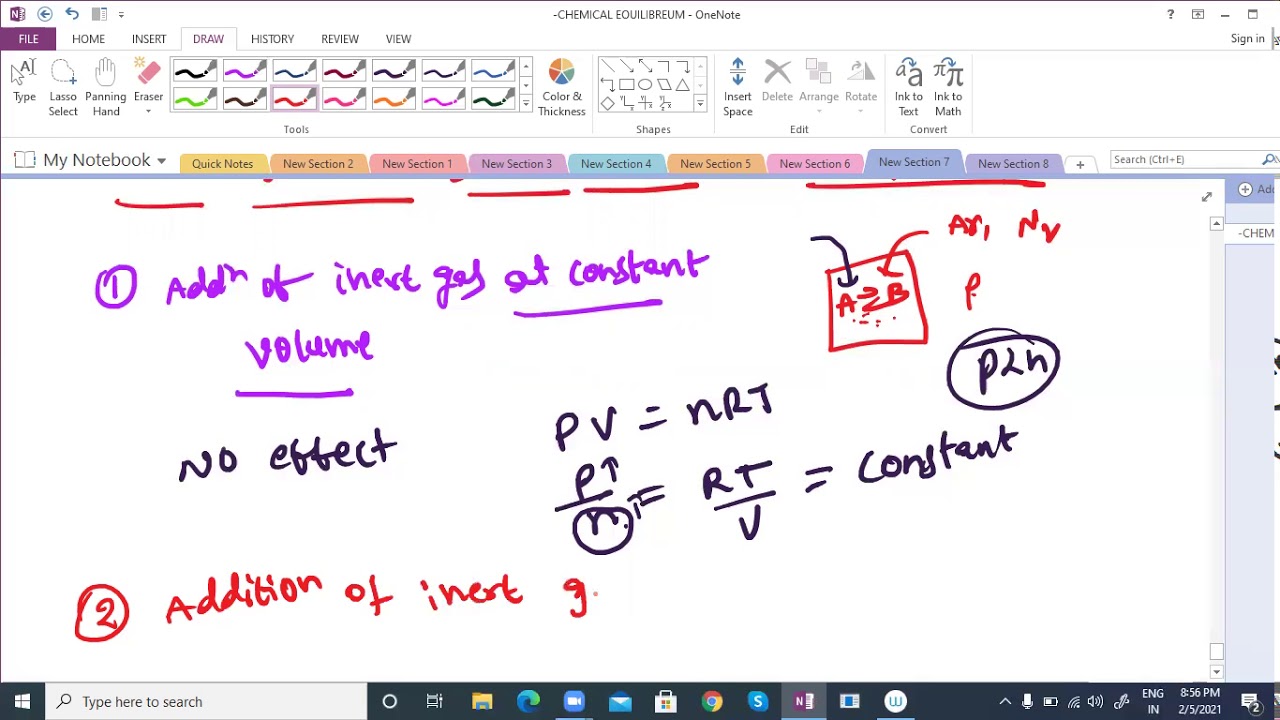 -CHEMICAL EQUILIBREUM - OneNote
?
Sign in
FILE HOME INSERT DRAW HISTORY REVIEW VIEW
Type
Lasso Select
Panning Hand
Eraser
Color & Thickness
Insert Space
Delete
Arrange
Rotate
Ink to Text
Ink to Math
Tools Shapes Edit Convert
My Notebook
Quick Notes New Section 2 New Section 1 New Section 3 New Section 4 New Section 5 New Section 6 New Section 7 New Section 8
Search (Ctrl+E)
Add
-CHEM
Ar, N₂
① Addⁿ of inert gas at constant
volume
A ⇌ B
P
P∝n
No effect
PV = nRT
P↑/n↑ = RT/V = constant
② Addition of inert g
Type here to search
ENG
IN
8:56 PM
2/5/2021
2